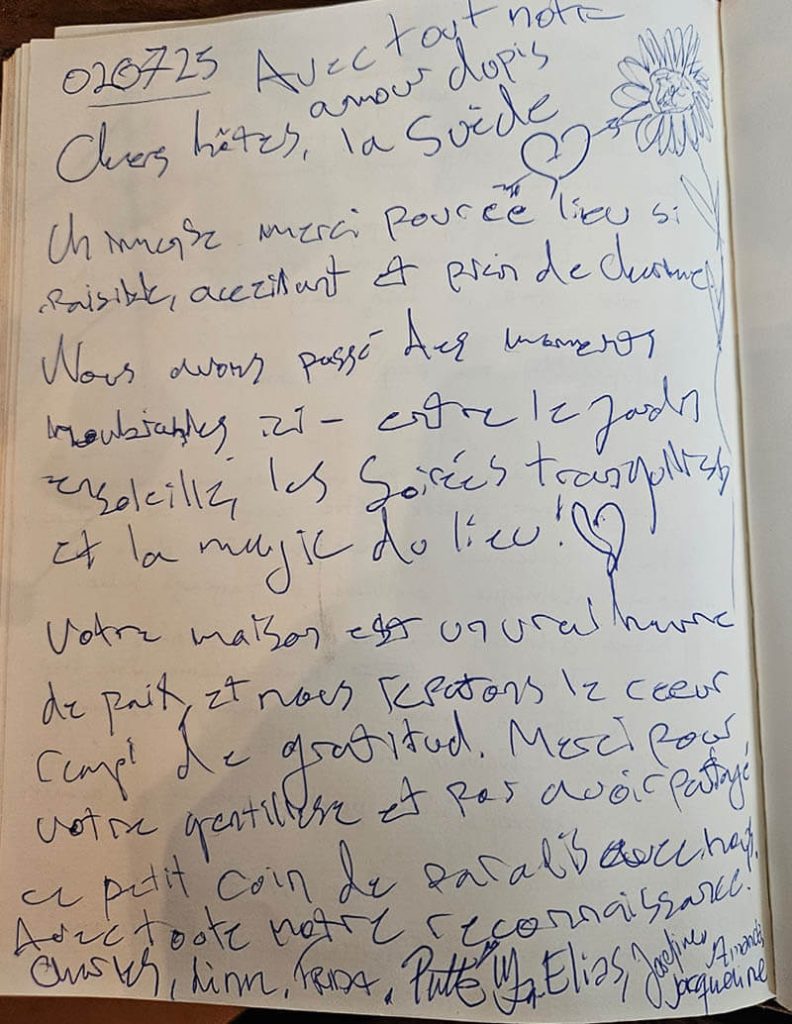 020725 Avec tout notre
amour dopis
Chers hôtes, la Suède
Un immense merci pour ce lieu si
paisible, et plein de charme
Nous avons passé des moments
ici - entre le jardin
ensoleillé, les soirées tranquilles
et la magie du lieu!
Votre maison est un vrai havre
de paix, et nous repartons le cœur
rempl de gratitud. Merci pour
votre gentillesse et par avoir partagé
ce petit coin de paradis avec nous.
Avec toote notre reconnaissance.
Charles, Linn, FRIDA, Putte, Elias, Josefine, Amanda
Jacqueline